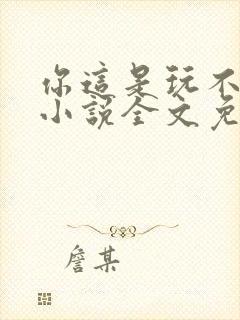 你這是玩不
小說全文免
詹某